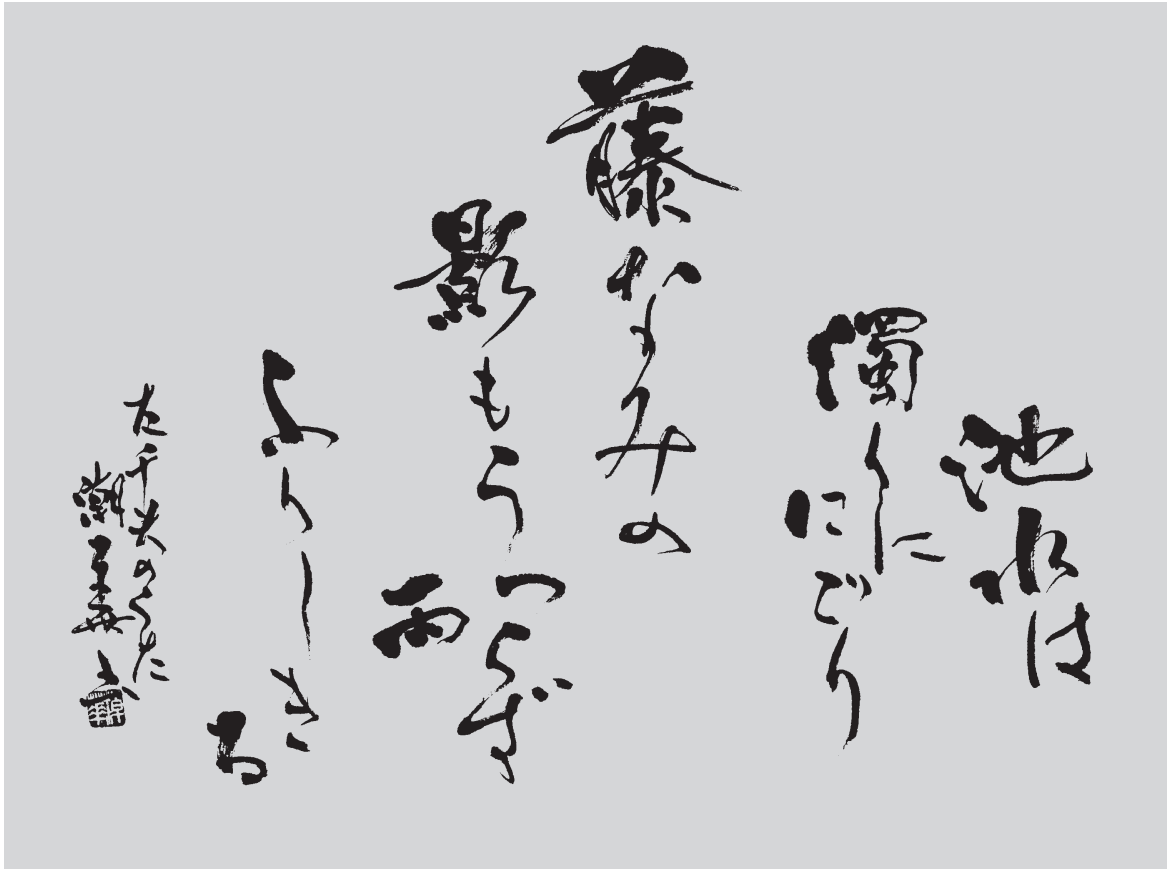 池水は
濁りに
にごり
藤なみの
影もうつらず
雨
ふりしき
る
左千夫のうた